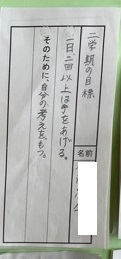 二学期の目標
名前
一日、二回以上は手をあげる。
そのために、自分の考えをもつ。